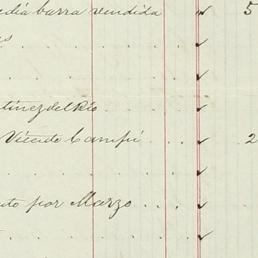 edia barra vendida ✓ 5
s ✓
✓
tinez del Rio ✓
Vicente Campú ✓ 2
✓
to por Marzo ✓
✓